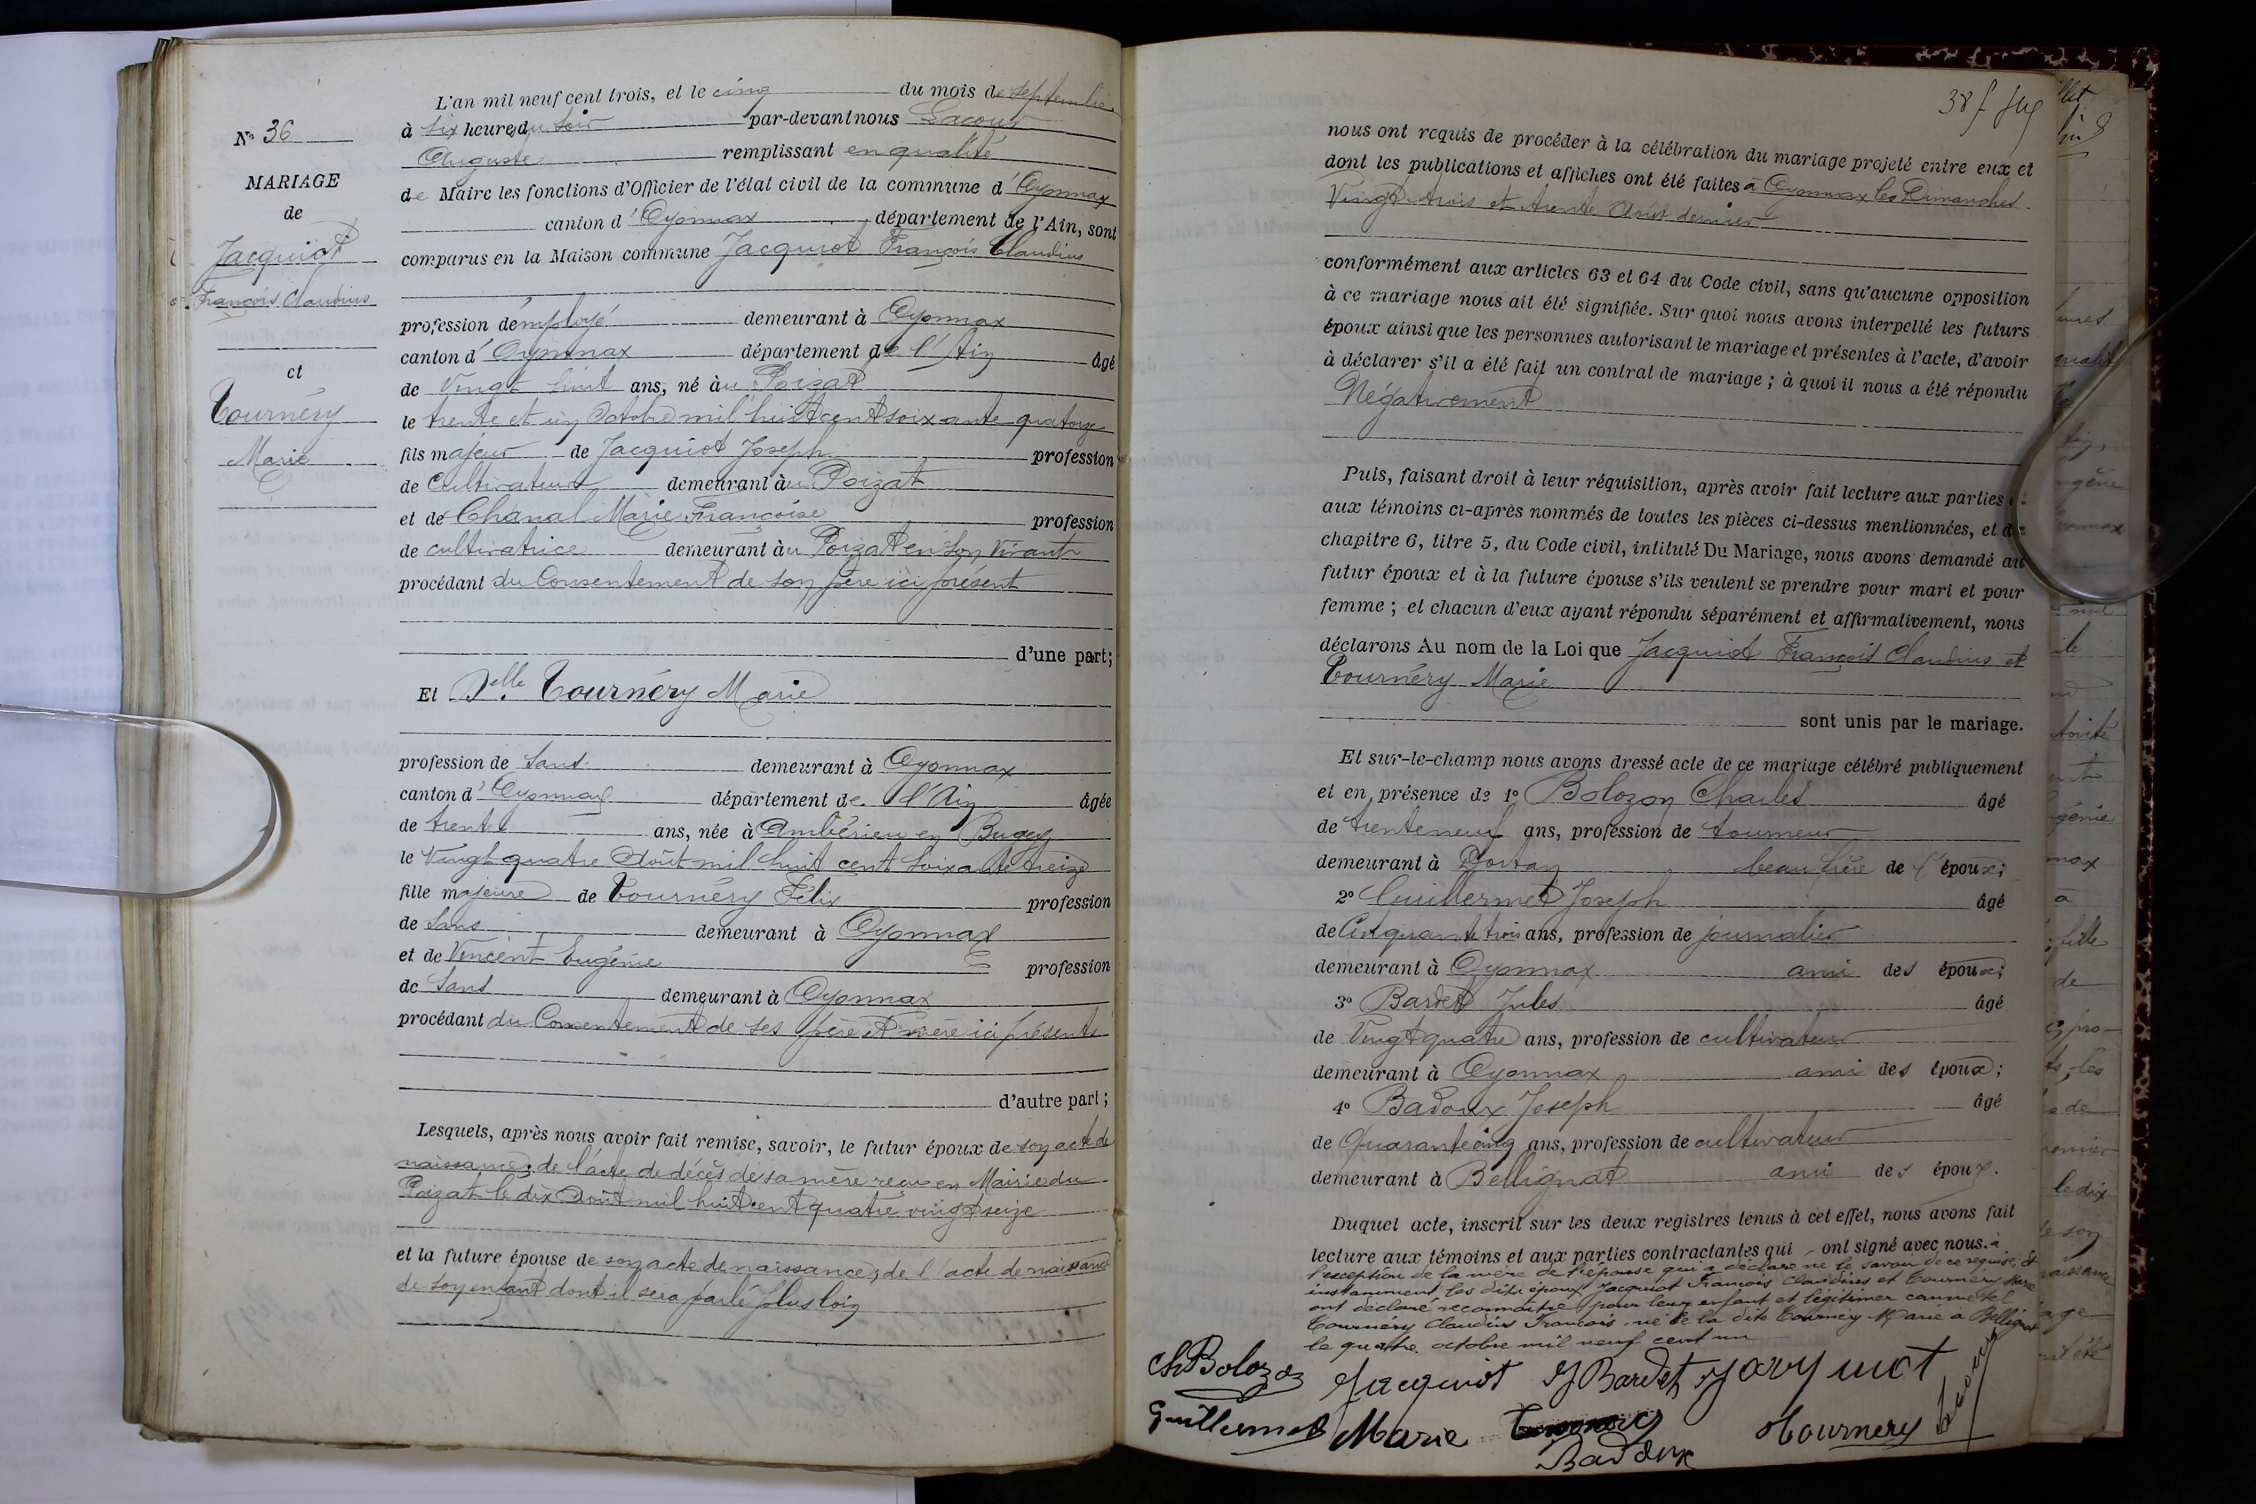 N° 36
MARIAGE
de
Jacquiot
François Claudius
et
Tournéry
Marie
L'an mil neuf cent trois, et le cinq du mois de septembre
à six heures du soir par-devant nous Lacour
Auguste remplissant en qualité
de Maire les fonctions d'Officier de l'état civil de la commune d'Oyonnax
canton d'Oyonnax, département de l'Ain, sont
comparus en la Maison commune Jacquiot François Claudius
profession d'employé demeurant à Oyonnax
canton d'Oyonnax département de l'Ain âgé
de Vingt huit ans, né au Poizat
le trente et un Octobre mil huit cent soixante quatorze
fils majeur de Jacquiot Joseph profession
de Cultivateur demeurant au Poizat
et de Chanal Marie Françoise profession
de cultivatrice demeurant au Poizat en son vivant
procédant du Consentement de son père ici présent
d'une part;
Et Delle Tournéry Marie
profession de Sans demeurant à Oyonnax
canton d'Oyonnax département de l'Ain âgée
de trente ans, née à Ambérieu en Bugey
le Vingt quatre Août mil huit cent soixante treize
fille majeure de Tournéry Félix profession
de Sans demeurant à Oyonnax
et de Vincent Eugénie profession
de Sans demeurant à Oyonnax
procédant du Consentement de ses père et mère ici présents
d'autre part;
Lesquels, après nous avoir fait remise, savoir, le futur époux de son acte de
naissance; de l'acte de décès de sa mère reçu en Mairie du
Poizat le dix Août mil huit cent quatre vingt seize
et la future épouse de son acte de naissance; de l'acte de naissance
de son enfant dont il sera parlé plus loin
38
nous ont requis de procéder à la célébration du mariage projeté entre eux et
dont les publications et affiches ont été faites à Oyonnax les Dimanches
Vingt trois et trente Août dernier
conformément aux articles 63 et 64 du Code civil, sans qu'aucune opposition
à ce mariage nous ait été signifiée. Sur quoi nous avons interpellé les futurs
époux ainsi que les personnes autorisant le mariage et présentes à l'acte, d'avoir
à déclarer s'il a été fait un contrat de mariage; à quoi il nous a été répondu
Négativement
Puis, faisant droit à leur réquisition, après avoir fait lecture aux parties et
aux témoins ci-après nommés de toutes les pièces ci-dessus mentionnées, et du
chapitre 6, titre 5, du Code civil, intitulé Du Mariage, nous avons demandé au
futur époux et à la future épouse s'ils veulent se prendre pour mari et pour
femme; et chacun d'eux ayant répondu séparément et affirmativement, nous
déclarons Au nom de la Loi que Jacquiot François Claudius et
Tournéry Marie
sont unis par le mariage.
Et sur-le-champ nous avons dressé acte de ce mariage célébré publiquement
et en présence de 1° Bolozon Charles âgé
de trente neuf ans, profession de tourneur
demeurant à Dortan beau frère de l'époux;
2° Guillermet Joseph âgé
de Cinquante trois ans, profession de journalier
demeurant à Oyonnax ami des époux;
3° Bardet Jules âgé
de Vingt quatre ans, profession de cultivateur
demeurant à Oyonnax ami des époux;
4° Badoux Joseph âgé
de Quarante cinq ans, profession de cultivateur
demeurant à Bellignat ami des époux.
Duquel acte, inscrit sur les deux registres tenus à cet effet, nous avons fait
lecture aux témoins et aux parties contractantes qui ont signé avec nous. à
l'exception de la mère de l'épouse qui a déclaré ne le savoir de ce requise, Et
instamment les dits époux Jacquiot François Claudius et Tournéry Marie
ont déclaré reconnaître pour leur enfant et légitimer comme tel
Tournéry Claudius François né de la dite Tournéry Marie à Bellignat
le quatre octobre mil neuf cent un
Ch Bolozon Jacquiot J Bardet Jacquiot
Guillermet Marie Tournery Lacour
Baddoux